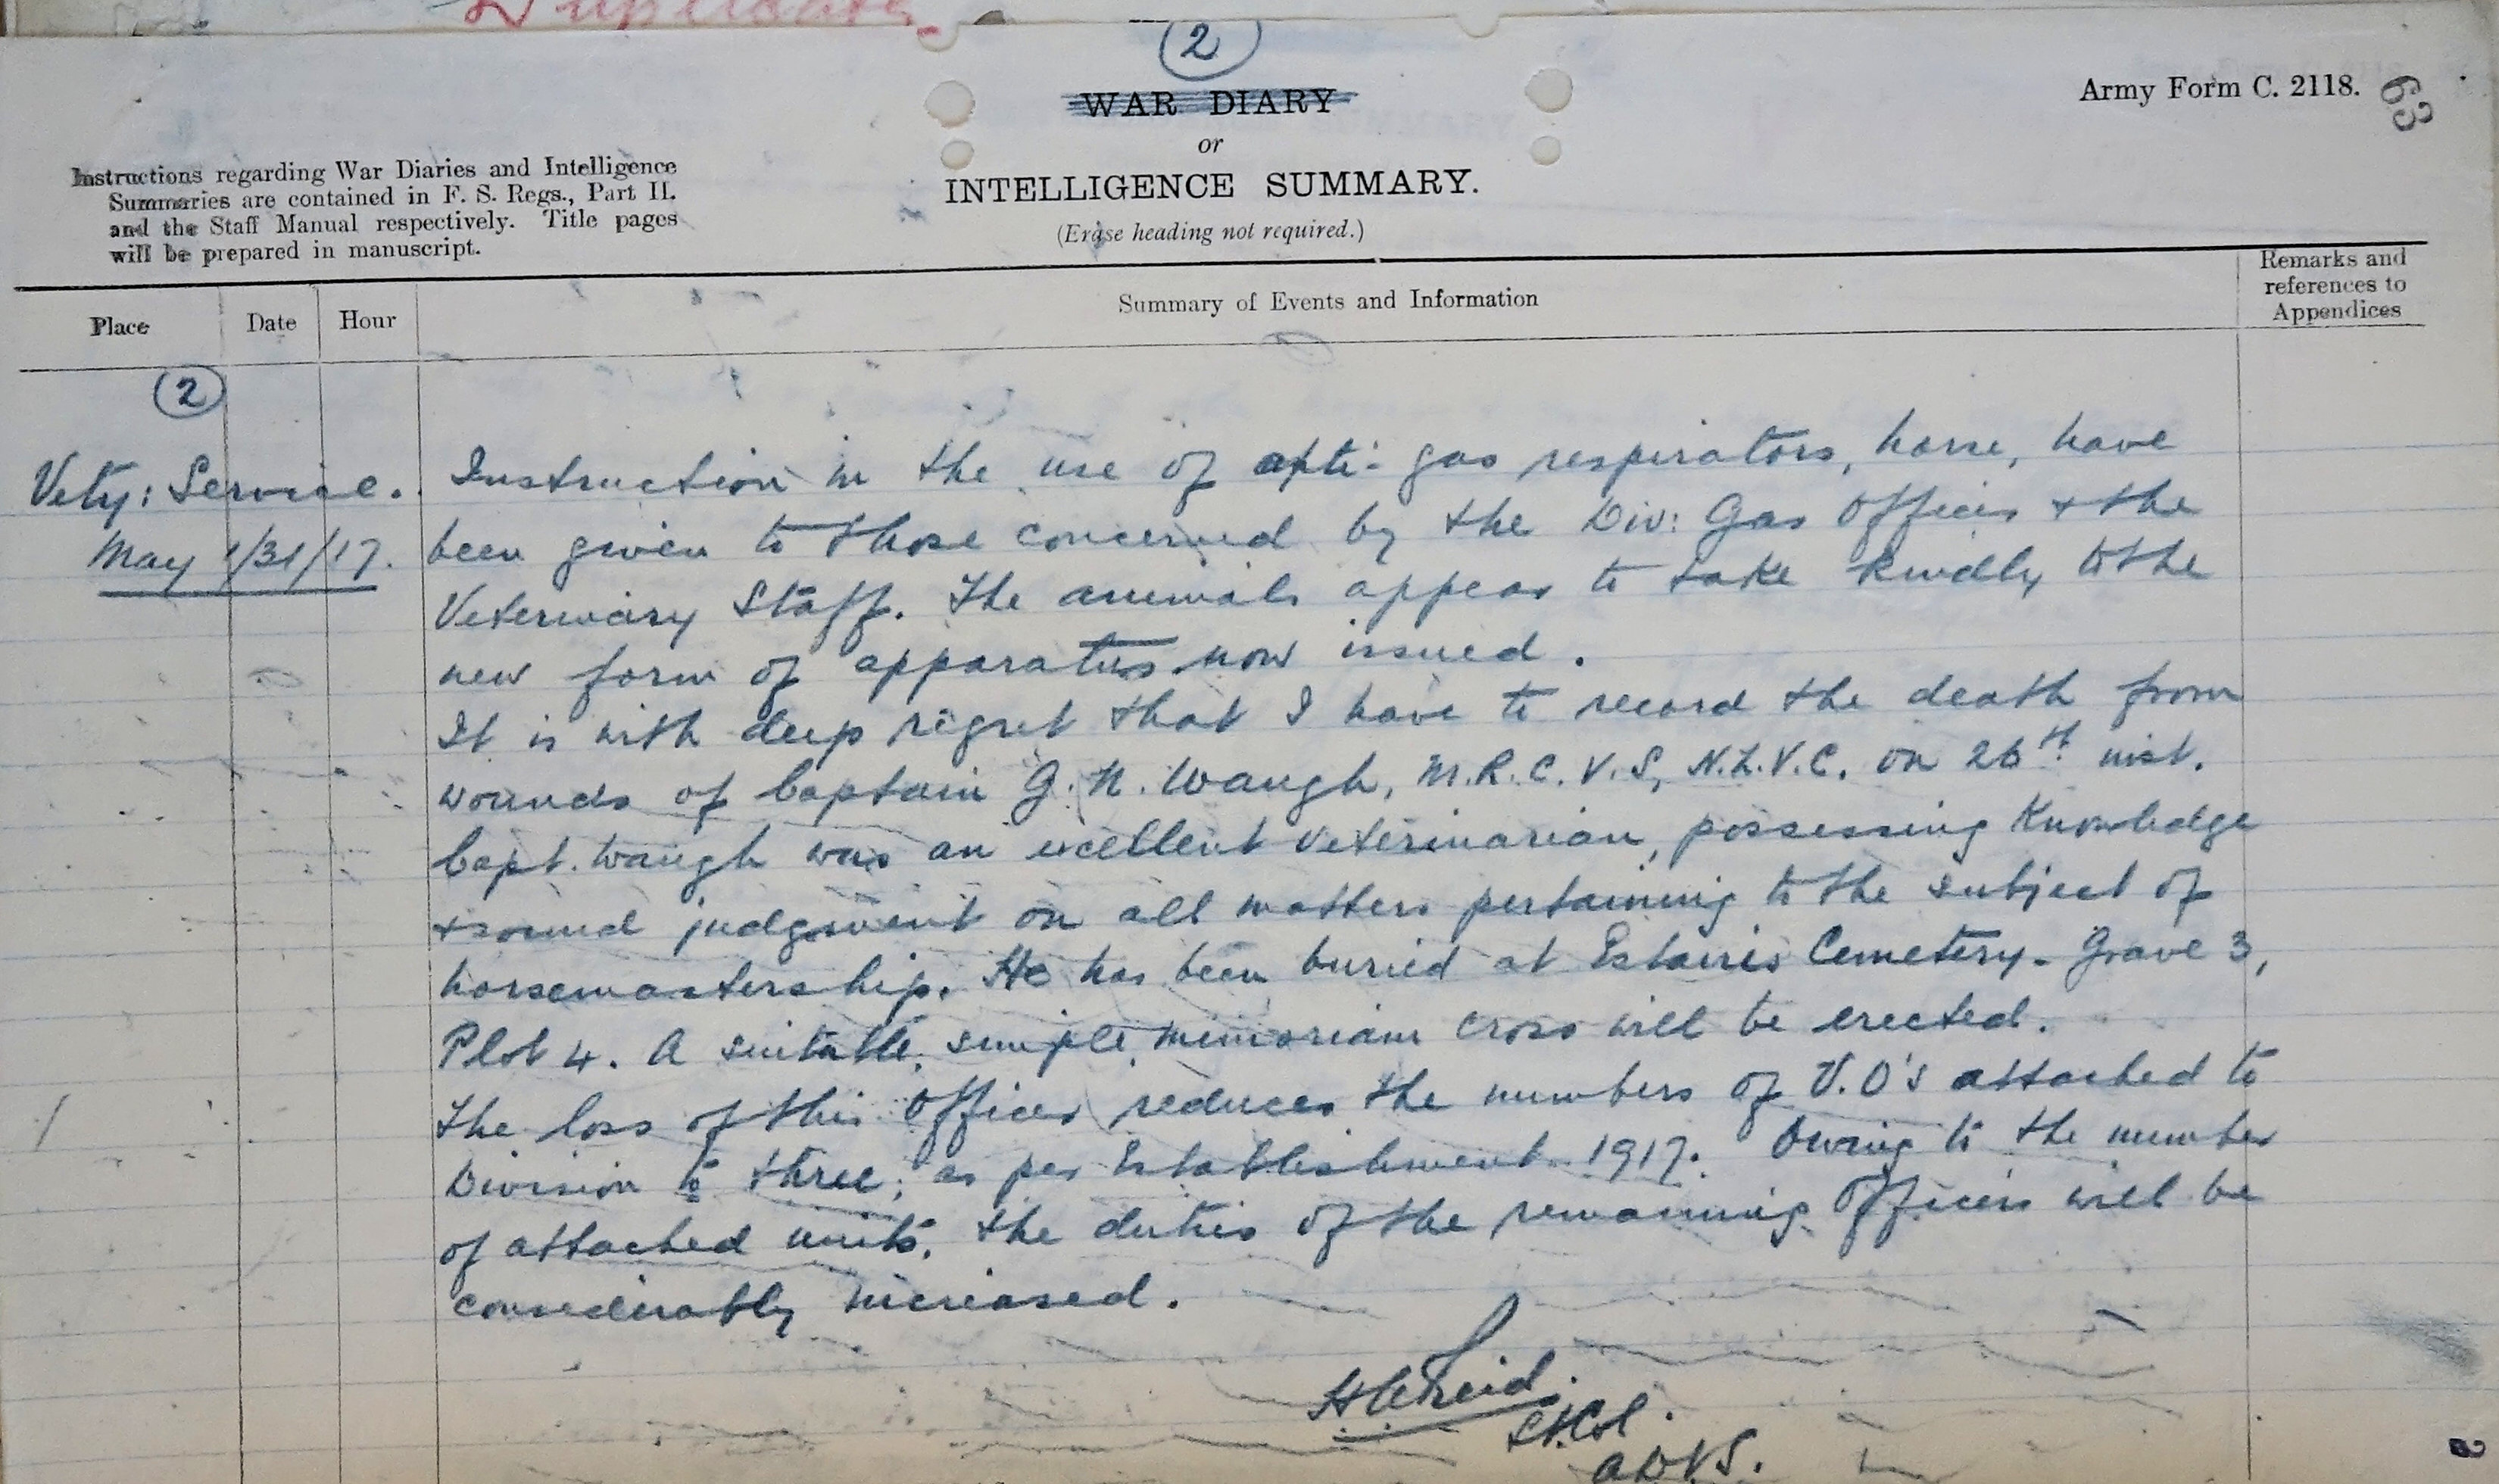 Duplicate
2
WAR DIARY
or
INTELLIGENCE SUMMARY.
(Erase heading not required.)
Army Form C. 2118.
63
Instructions regarding War Diaries and Intelligence
Summaries are contained in F. S. Regs., Part II.
and the Staff Manual respectively. Title pages
will be prepared in manuscript.
Place
Date
Hour
Summary of Events and Information
Remarks and
references to
Appendices
2
Vety: Service.
May 1/31/17.
Instruction in the use of anti-gas respirators, horse, have
been given to those concerned by the Div: Gas Officer & the
Veterinary Staff. The animals appear to take kindly to the
new form of apparatus now issued.
It is with deep regret that I have to record the death from
wounds of Captain G. N. Waugh, M.R.C.V.S, N.Z.V.C. on 26th inst.
Capt. Waugh was an excellent Veterinarian, possessing Knowledge
& sound judgment on all matters pertaining to the subject of
horsemastership. He has been buried at Estaires Cemetery. Grave 3,
Plot 4. A suitable, simple, memoriam cross will be erected.
The loss of this Officer reduces the numbers of V.O's attached to
Division to three; as per Establishment 1917. Owing to the number
of attached units, the duties of the remaining Officers will be
considerably increased.
Reid.
Lt. Col.
ADVS.
2